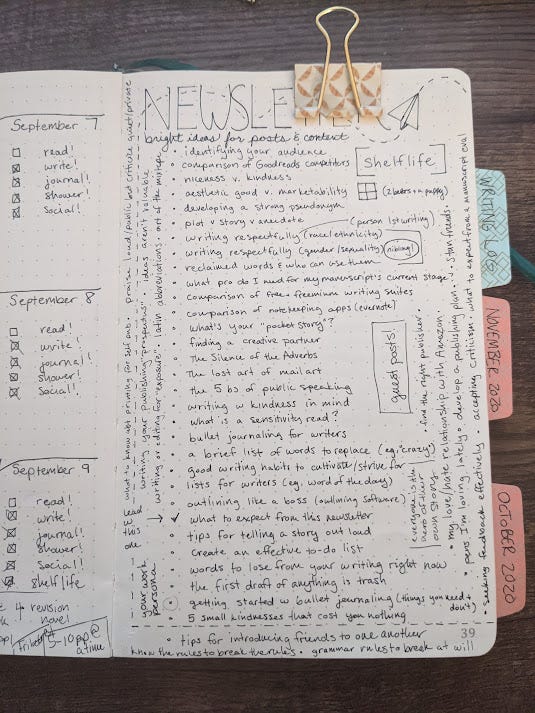 September 7
read!
write!
journal!
shower!
social!
September 8
read!
write!
journal!
shower!
social!
September 9
read!
write!
journal!
shower!
social!
shelf life
revision
novel
5-10pp@
a time
NEWSLE
bright ideas for posts & content
• identifying your audience
• comparison of Goodreads competitors
• niceness v. kindness
• aesthetic good v. marketability
• developing a strong pseudonym
• plot v story v anecdote
• writing respectfully (race/ethnicity)
• writing respectfully (gender/sexuality)
• reclaimed words & who can use them
• what pro do I need for my manuscript's current stage?
• comparison of free & freemium writing suites
• comparison of notekeeping apps (evernote)
• what's your "pocket story"?
• finding a creative partner
• The Silence of the Adverbs
• The lost art of mail art
• the 5 bs of public speaking
• writing w kindness in mind
• what is a sensitivity read?
• bullet journaling for writers
• a brief list of words to replace (eg. "crazy")
• good writing habits to cultivate/strive for
• lists for writers (eg. word of the day)
• outlining like a boss (outlining software)
✓ what to expect from this newsletter
• tips for telling a story out loud
• create an effective to-do list
• words to lose from your writing right now
• the first draft of anything is trash
• getting started w bullet journaling (things you need + don't)
• 5 small kindnesses that cost you nothing
• tips for introducing friends to one another
know the rules to break the rules • grammar rules to break at will
shelf life
(2 bears + a puppy)
(person 1st writing)
nibling!
guest posts!
everyone is the
hero of their
own story
39
• praise loud/public but criticize quiet/private
what to know abt printing for self pub
• writing your publishing "prospectus" • ideas aren't valuable
writing or editing for "exposure" • latin abbreviations • art of the mixtape
lead
this
one
your work
persona
• find the right publisher
• my love/hate relationship with Amazon
• pens I'm loving lately • develop a publishing plan • v. stan friends
• seeking feedback effectively • accepting criticism • what to expect from a manuscript eval
WRITING LOG
NOVEMBER 2020
OCTOBER 2020